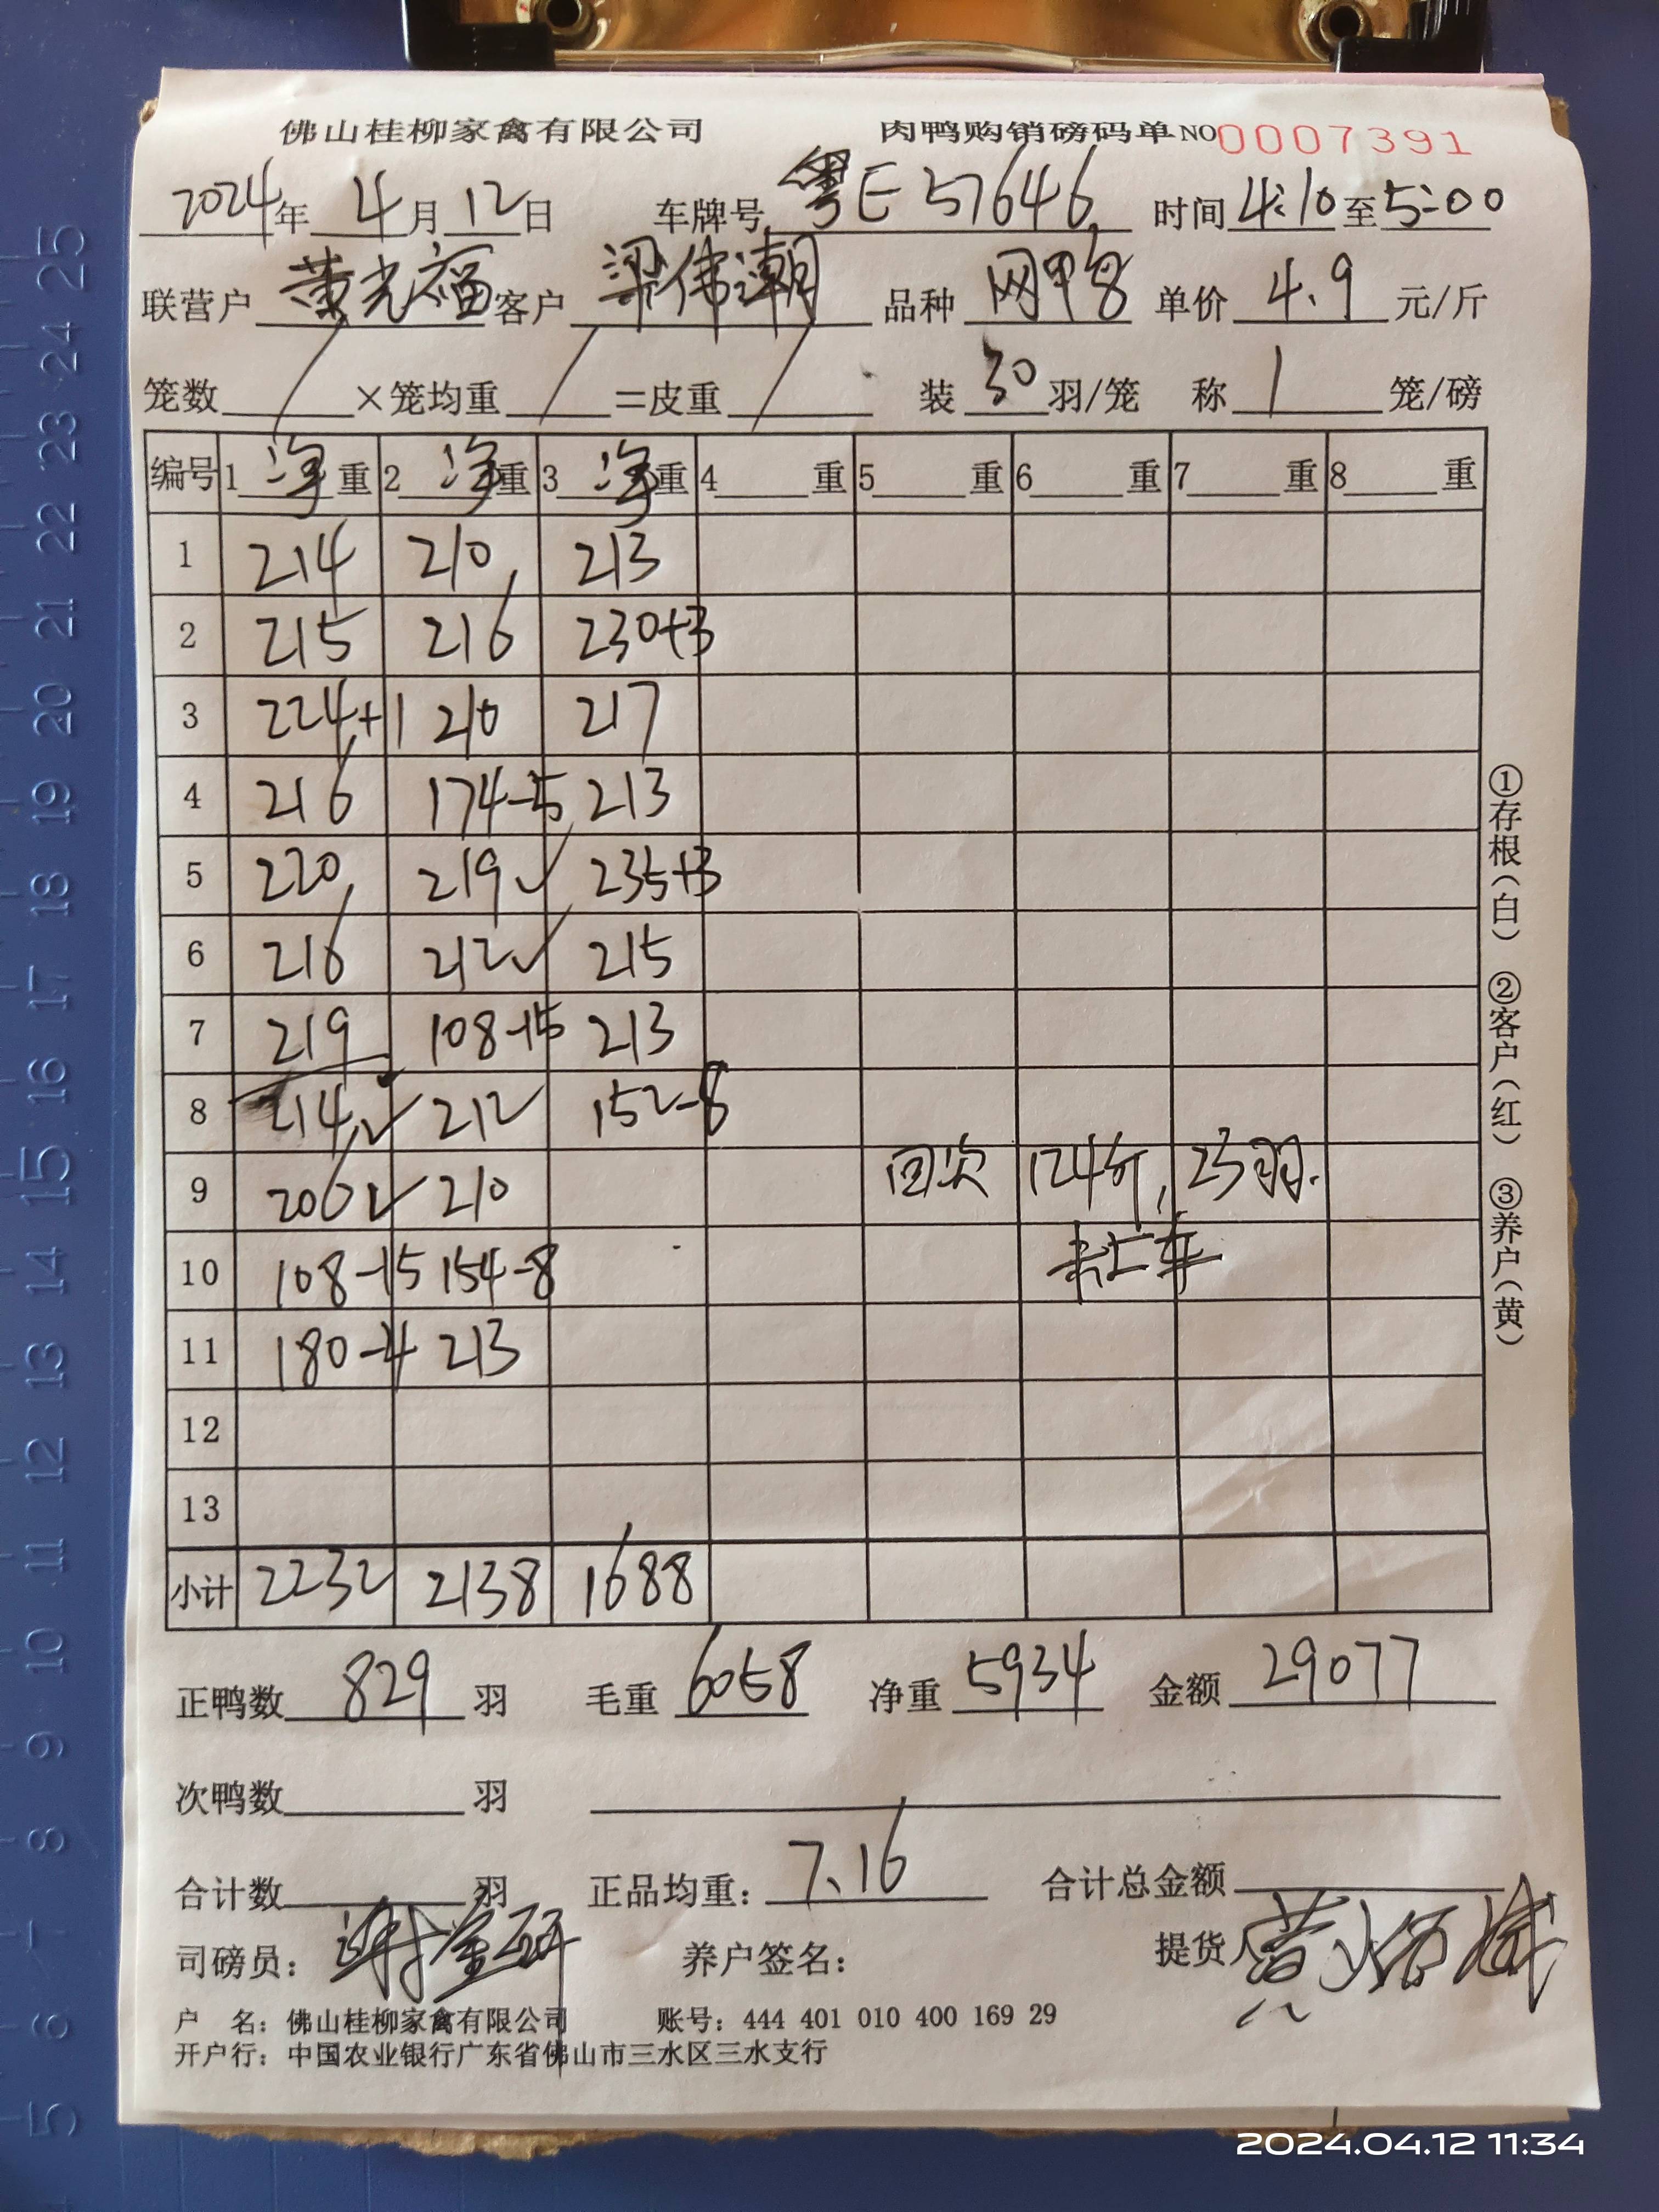 佛山桂柳家禽有限公司 肉鸭购销磅码单NO0007391
2024年 4月12日 车牌号 粤E57646 时间4:10至5:00
联营户 黄光福 客户 梁伟潮 品种 网鸭 单价 4.9 元/斤
笼数 / ×笼均重 / =皮重 / 装 30 羽/笼 称 1 笼/磅
编号 1 净 重 2 净 重 3 净 重 4 重 5 重 6 重 7 重 8 重
1 214 210 213
2 215 216 230+3
3 224+1 210 217
4 216 174-5 213
5 220 219✓ 235+3
6 216 212✓ 215
7 219 108-15 213
8 214✓ 212 152-8
9 206✓ 210 回次 124斤, 23羽.
10 108-15 154-8
11 180-4 213
12
13
小计 2232 2138 1688
正鸭数 829 羽 毛重 6058 净重 5934 金额 29077
次鸭数 羽
合计数 羽 正品均重: 7.16 合计总金额
司磅员: 养户签名: 提货人
户 名: 佛山桂柳家禽有限公司 账号: 444 401 010 400 169 29
开户行: 中国农业银行广东省佛山市三水区三水支行
①存根(白) ②客户(红) ③养户(黄)
25
24
23
22
21
20
19
18
17
16
15
14
13
12
11
10
9
8
7
6
5
2024.04.12 11:34